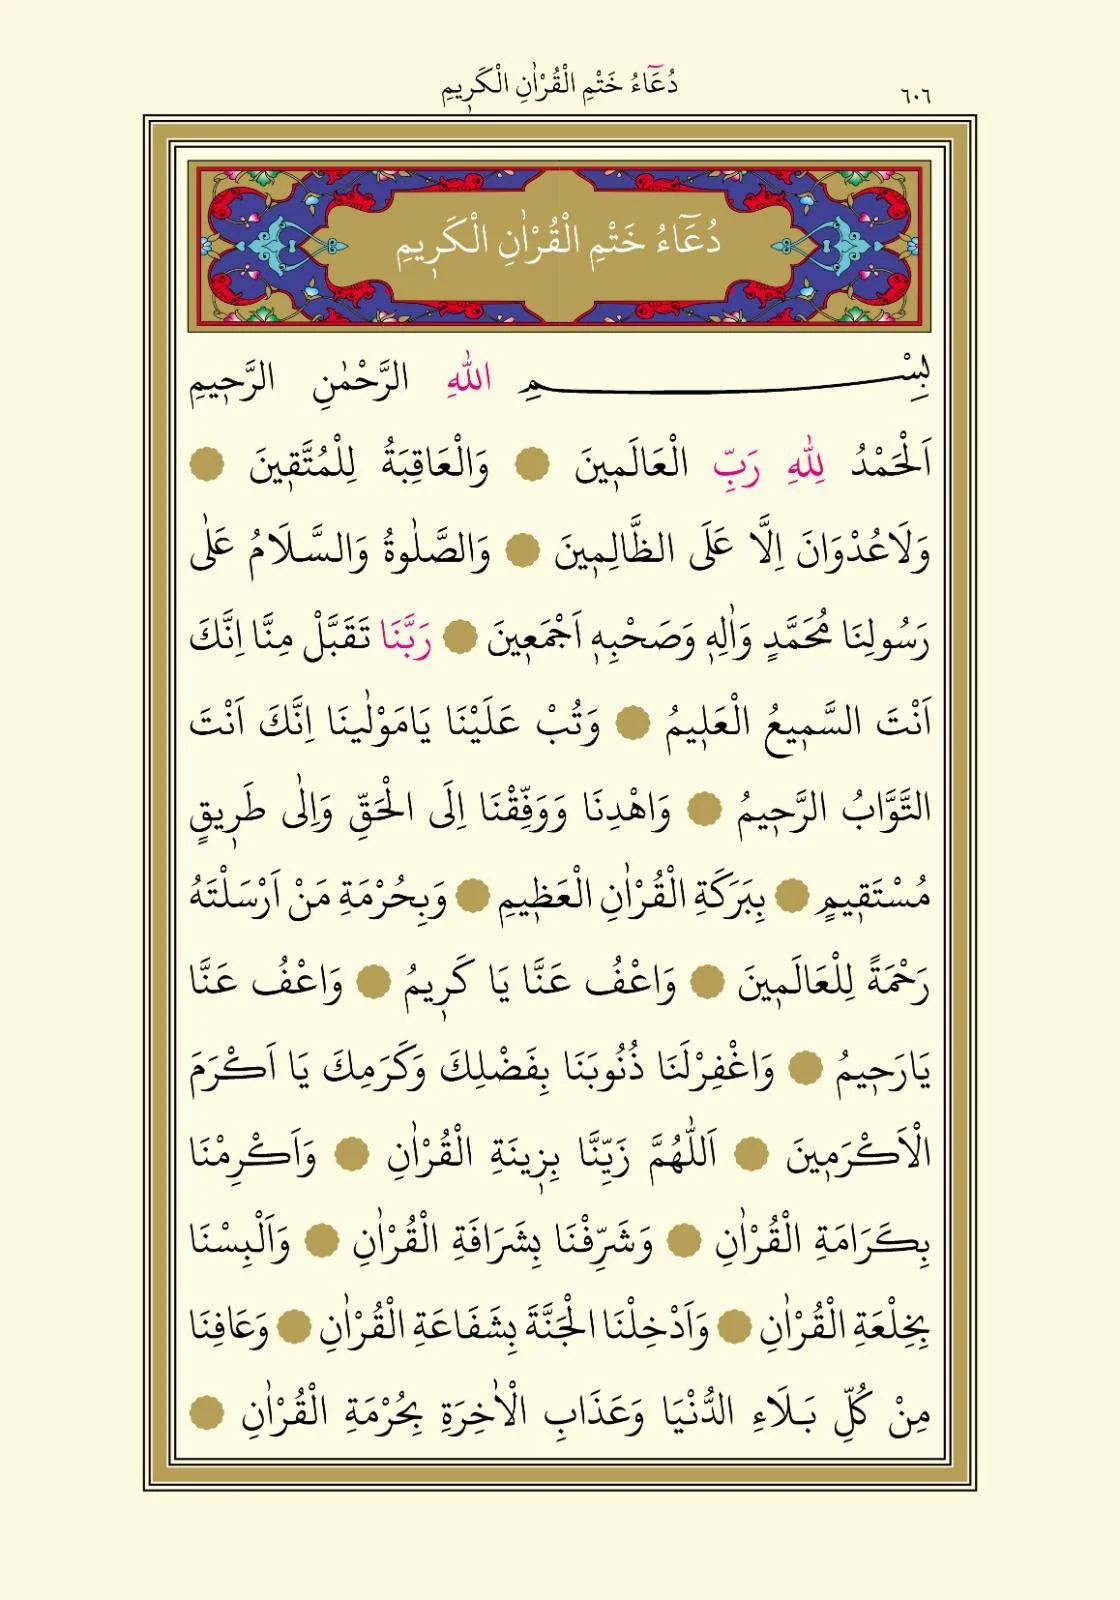 دُعَٓاءُ خَتْمِ الْقُرْاٰنِ الْكَرٖيمِ
٦٠٦
دُعَٓاءُ خَتْمِ الْقُرْاٰنِ الْكَرٖيمِ
بِسْـــــــــــــمِ اللّٰهِ الرَّحْمٰنِ الرَّحٖيمِ
اَلْحَمْدُ لِلّٰهِ رَبِّ الْعَالَمٖينَ ۞ وَالْعَاقِبَةُ لِلْمُتَّقٖينَ ۞
وَلَاعُدْوَانَ اِلَّا عَلَى الظَّالِمٖينَ ۞ وَالصَّلٰوةُ وَالسَّلَامُ عَلٰى
رَسُولِنَا مُحَمَّدٍ وَاٰلِهٖ وَصَحْبِهٖ اَجْمَعٖينَ ۞ رَبَّنَا تَقَبَّلْ مِنَّا اِنَّكَ
اَنْتَ السَّمٖيعُ الْعَلٖيمُ ۞ وَتُبْ عَلَيْنَا يَامَوْلٰينَا اِنَّكَ اَنْتَ
التَّوَّابُ الرَّحٖيمُ ۞ وَاهْدِنَا وَوَفِّقْنَا اِلَى الْحَقِّ وَاِلٰى طَرٖيقٍ
مُسْتَقٖيمٍ ۞ بِبَرَكَةِ الْقُرْاٰنِ الْعَظٖيمِ ۞ وَبِحُرْمَةِ مَنْ اَرْسَلْتَهُ
رَحْمَةً لِلْعَالَمٖينَ ۞ وَاعْفُ عَنَّا يَا كَرٖيمُ ۞ وَاعْفُ عَنَّا
يَارَحٖيمُ ۞ وَاغْفِرْلَنَا ذُنُوبَنَا بِفَضْلِكَ وَكَرَمِكَ يَا اَكْرَمَ
الْاَكْرَمٖينَ ۞ اَللّٰهُمَّ زَيِّنَّا بِزٖينَةِ الْقُرْاٰنِ ۞ وَاَكْرِمْنَا
بِكَرَامَةِ الْقُرْاٰنِ ۞ وَشَرِّفْنَا بِشَرَافَةِ الْقُرْاٰنِ ۞ وَاَلْبِسْنَا
بِخِلْعَةِ الْقُرْاٰنِ ۞ وَاَدْخِلْنَا الْجَنَّةَ بِشَفَاعَةِ الْقُرْاٰنِ ۞ وَعَافِنَا
مِنْ كُلِّ بَلَاءِ الدُّنْيَا وَعَذَابِ الْاٰخِرَةِ بِحُرْمَةِ الْقُرْاٰنِ ۞